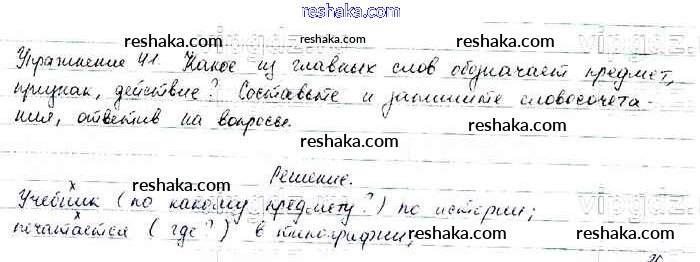 reshaka.com
Упражнение 41. Какое из главных слов обозначает предмет,
reshaka.com reshaka.com
признак, действие? Составьте и запишите словосочета-
ния, ответив на вопросы.
reshaka.com
Решение.
reshaka.com reshaka.com
vipgdz
Учебник (по какому предмету?) по истории;
печатается (где?) в типографии;
reshaka.com reshaka.com